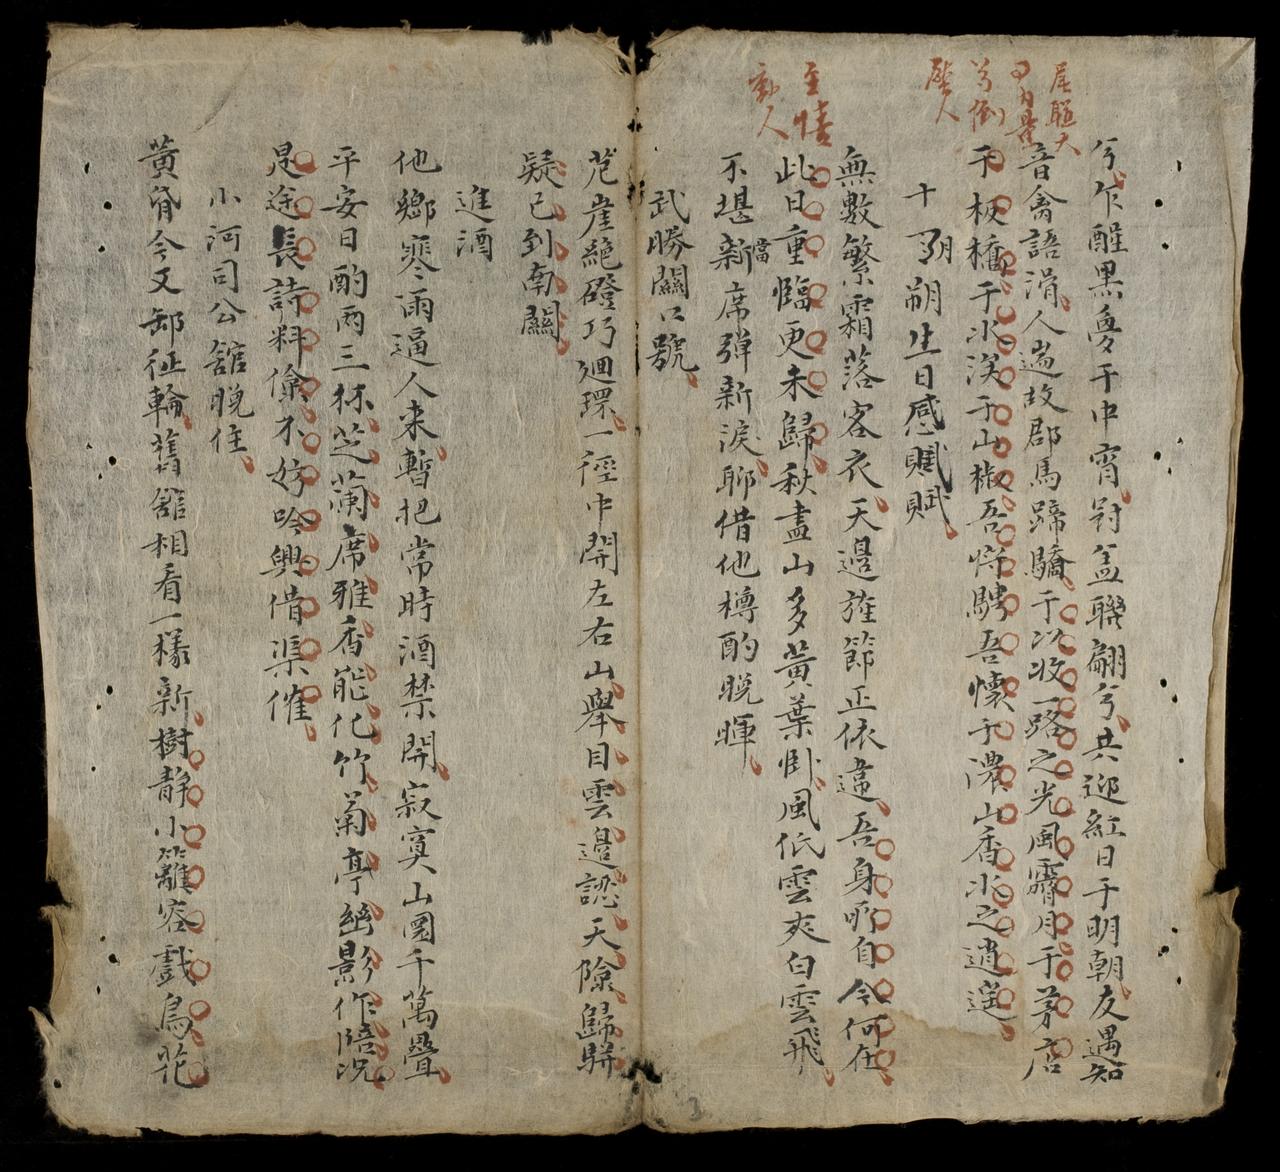 兮乍醒黒夢于中宵冠盖聯翩兮共迎紅日于明朝友遇知
音禽語滑人遄故郡馬蹄驕于以收一路之光風霽月于茅店
于板橋于水渼于山椒吾將騁吾懷于濃山香水之逍遥
十朔生日感賦
無數繁霜落客衣天邉旌節正依違吾身所自今何在
此日重臨更未歸秋盡山多黄葉卧風低雲爽白雲飛
不堪新當席弹新淚聊借他樽酌晚暉
武勝關口號
崖絶磴巧廻環一徑中開左右山舉目雲邉認天險歸騈
疑已到南關
進酒
他鄉寒雨逼人来暫把常時酒禁開寂寞山園千萬疊
平安日酌两三杯芝蘭席雅香能化竹菊亭幽影作陪况
是途長詩料儉不妨吟興借渠催
小河司公舘晚住
黄昏今又卸征輪舊舘相看一様新樹静小籬容戲鳥花
尾聯大
兮倒
人
至情
人